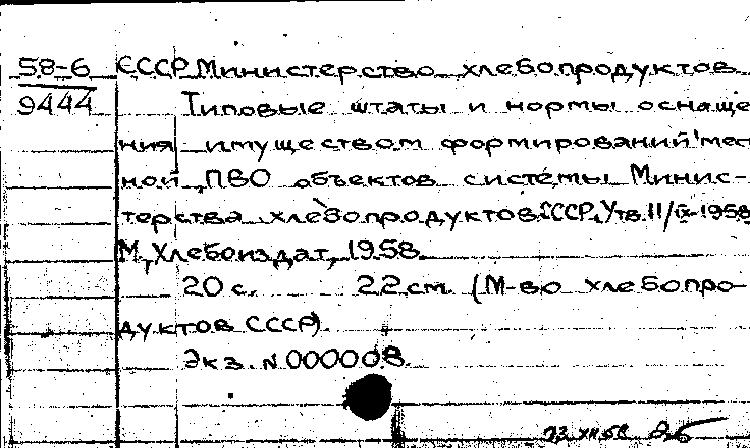 58-6 СССР Министерство хлебопродуктов
9444 Типовые штаты и нормы оснаще
ния имуществом формирований мест
ной ПВО объектов системы Минис-
терства хлебопродуктов СССР. Утв. 11/IX-1958
М., Хлебоиздат, 1958.
20 с. 22 см. (М-во хлебопро-
дуктов СССР).
Экз. N 000008.